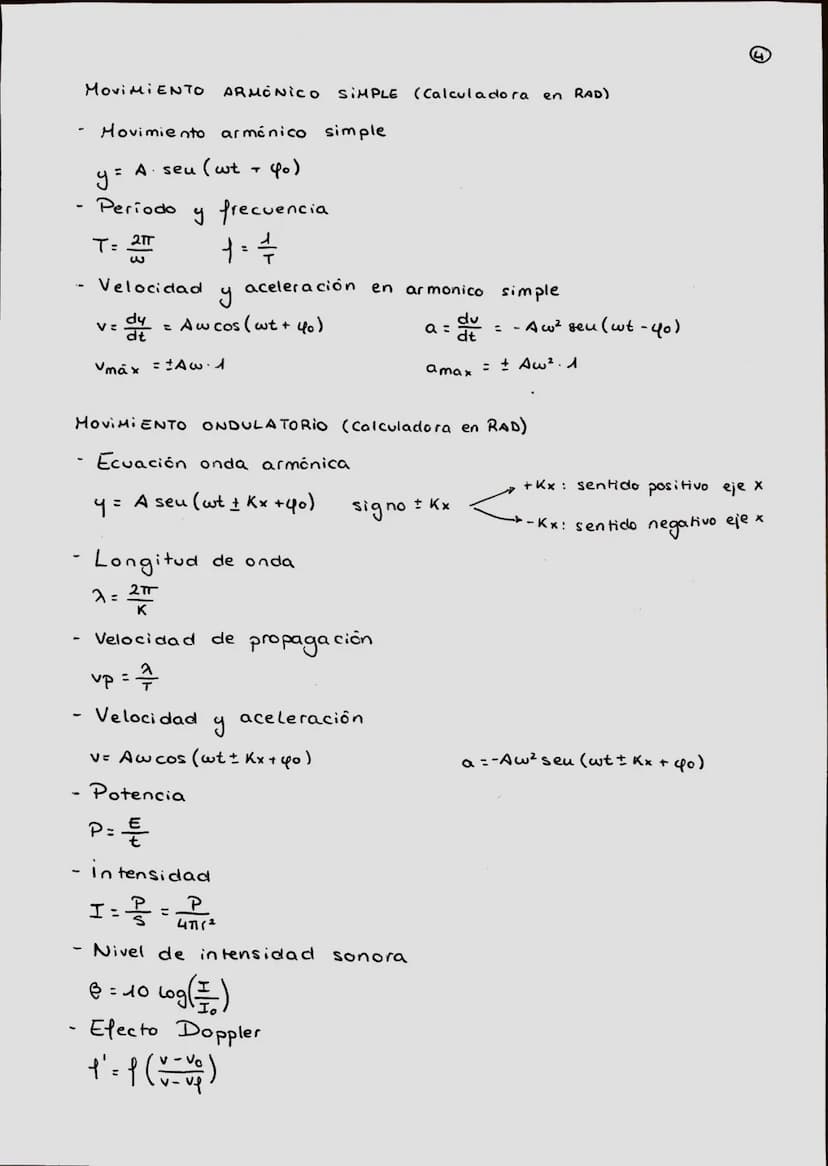 4
MOVIMIENTO ARMÓNICO SIMPLE (Calculadora en RAD)
- Movimiento armónico simple
y = A · seu (ωt + φ₀)
- Período y frecuencia
T = 2π/ω f = 1/T
- Velocidad y aceleración en armonico simple
v = dy/dt = Aω cos (ωt + φ₀) a = dv/dt = - Aω² seu (ωt - φ₀)
vmáx = ±Aω · 1 amax = ± Aω² · 1
MOVIMIENTO ONDULATORIO (Calculadora en RAD)
- Ecuación onda armónica
y = A seu (ωt ± Kx + φ₀) signo ± Kx
+Kx : sentido positivo eje x
-Kx : sentido negativo eje x
- Longitud de onda
λ = 2π/K
- Velocidad de propagación
vp = λ/T
- Velocidad y aceleración
v = Aω cos (ωt ± Kx + φ₀) a = -Aω² seu (ωt ± Kx + φ₀)
- Potencia
P = E/t
- intensidad
I = P/S = P/4πr²
- Nivel de intensidad sonora
β = 10 log(I/I₀)
- Efecto Doppler
f' = f (v - v₀/v - vf)